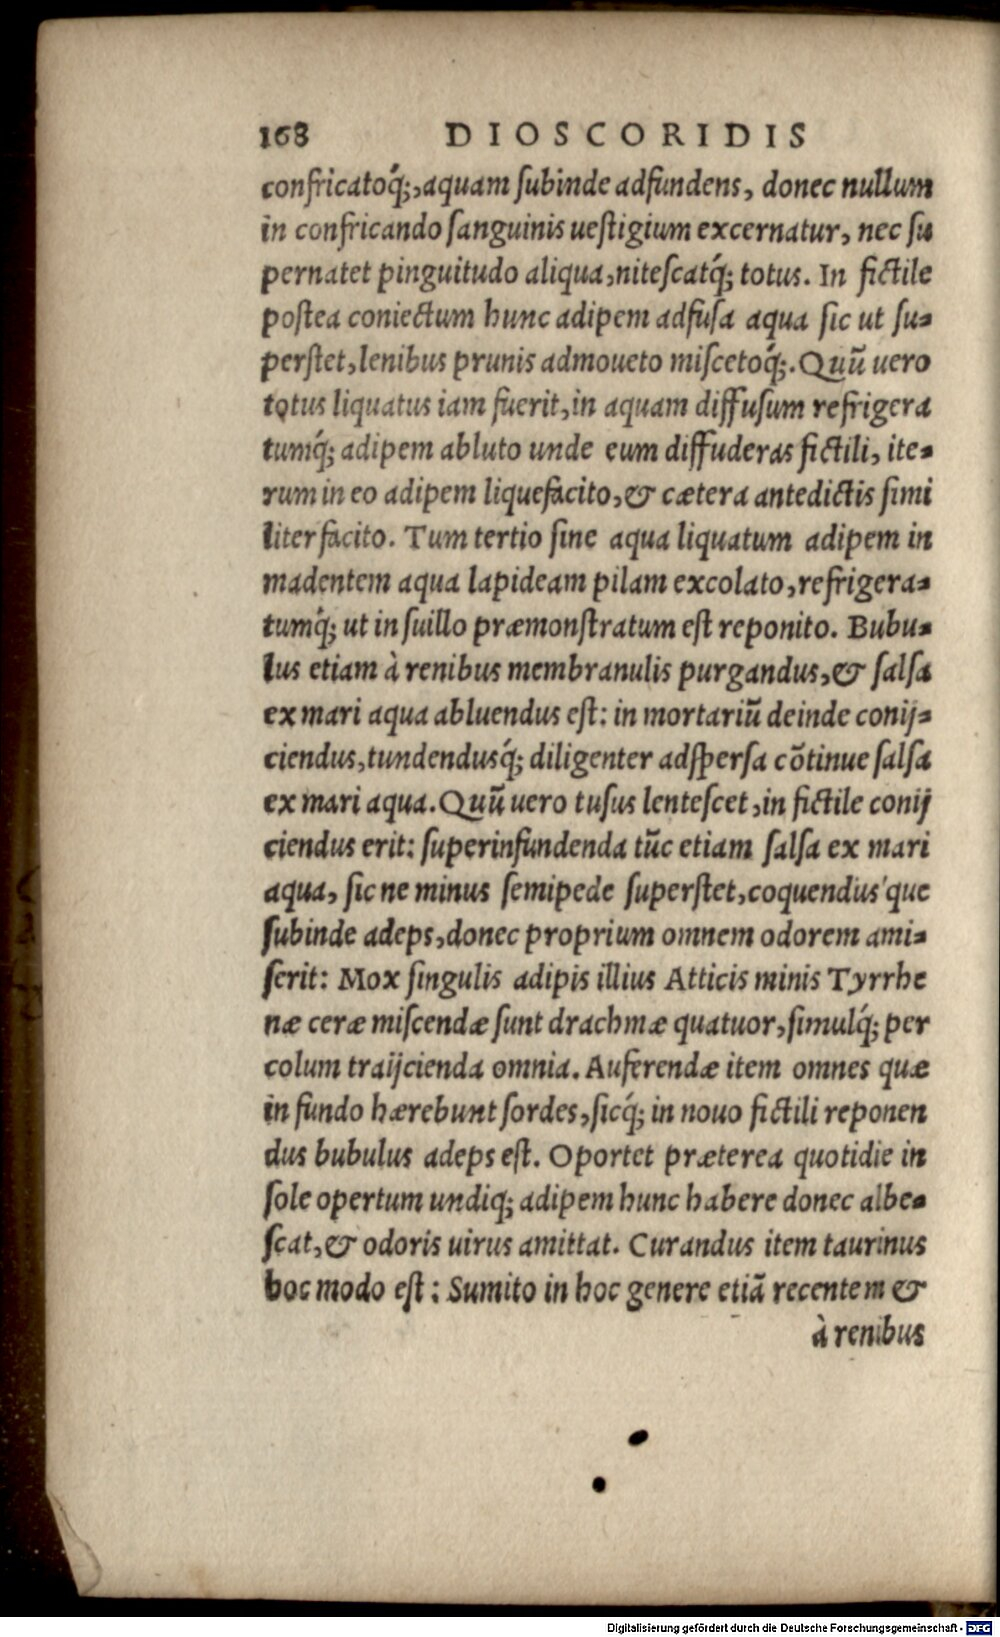 168 DIOSCORIDIS
confricatoq́;, aquam ſubinde adfundens, donec nullum
in confricando ſanguinis ueſtigium excernatur, nec ſu
pernatet pinguitudo aliqua, niteſcatq́; totus. In fictile
poſtea coniectum hunc adipem adfuſa aqua ſic ut ſu-
perſtet, lenibus prunis admoueto miſcetoq́;. Quũ uero
totus liquatus iam fuerit, in aquam diffuſum refrigera
tumq́; adipem abluto unde eum diffuderas fictili, ite-
rum in eo adipem liquefacito, & cætera antedictis ſimi
liter facito. Tum tertio ſine aqua liquatum adipem in
madentem aqua lapideam pilam excolato, refrigera-
tumq́; ut in ſuillo præmonſtratum eſt reponito. Bubu-
lus etiam à renibus membranulis purgandus, & ſalſa
ex mari aqua abluendus eſt: in mortariũ deinde conij-
ciendus, tundendusq́; diligenter adſperſa cõtinue ſalſa
ex mari aqua. Quũ uero tuſus lenteſcet, in fictile conij
ciendus erit: ſuperinfundenda tũc etiam ſalſa ex mari
aqua, ſic ne minus ſemipede ſuperſtet, coquendus'que
ſubinde adeps, donec proprium omnem odorem ami-
ſerit: Mox ſingulis adipis illius Atticis minis Tyrrhe
næ ceræ miſcendæ ſunt drachmæ quatuor, ſimulq́; per
colum traijcienda omnia. Auferendæ item omnes quæ
in fundo hærebunt ſordes, ſicq́; in nouo fictili reponen
dus bubulus adeps eſt. Oportet præterea quotidie in
ſole opertum undiq; adipem hunc habere donec albe-
ſcat, & odoris uirus amittat. Curandus item taurinus
hoc modo eſt: Sumito in hoc genere etiã recentem &
à renibus
Digitalisierung gefördert durch die Deutsche Forschungsgemeinschaft - DFG